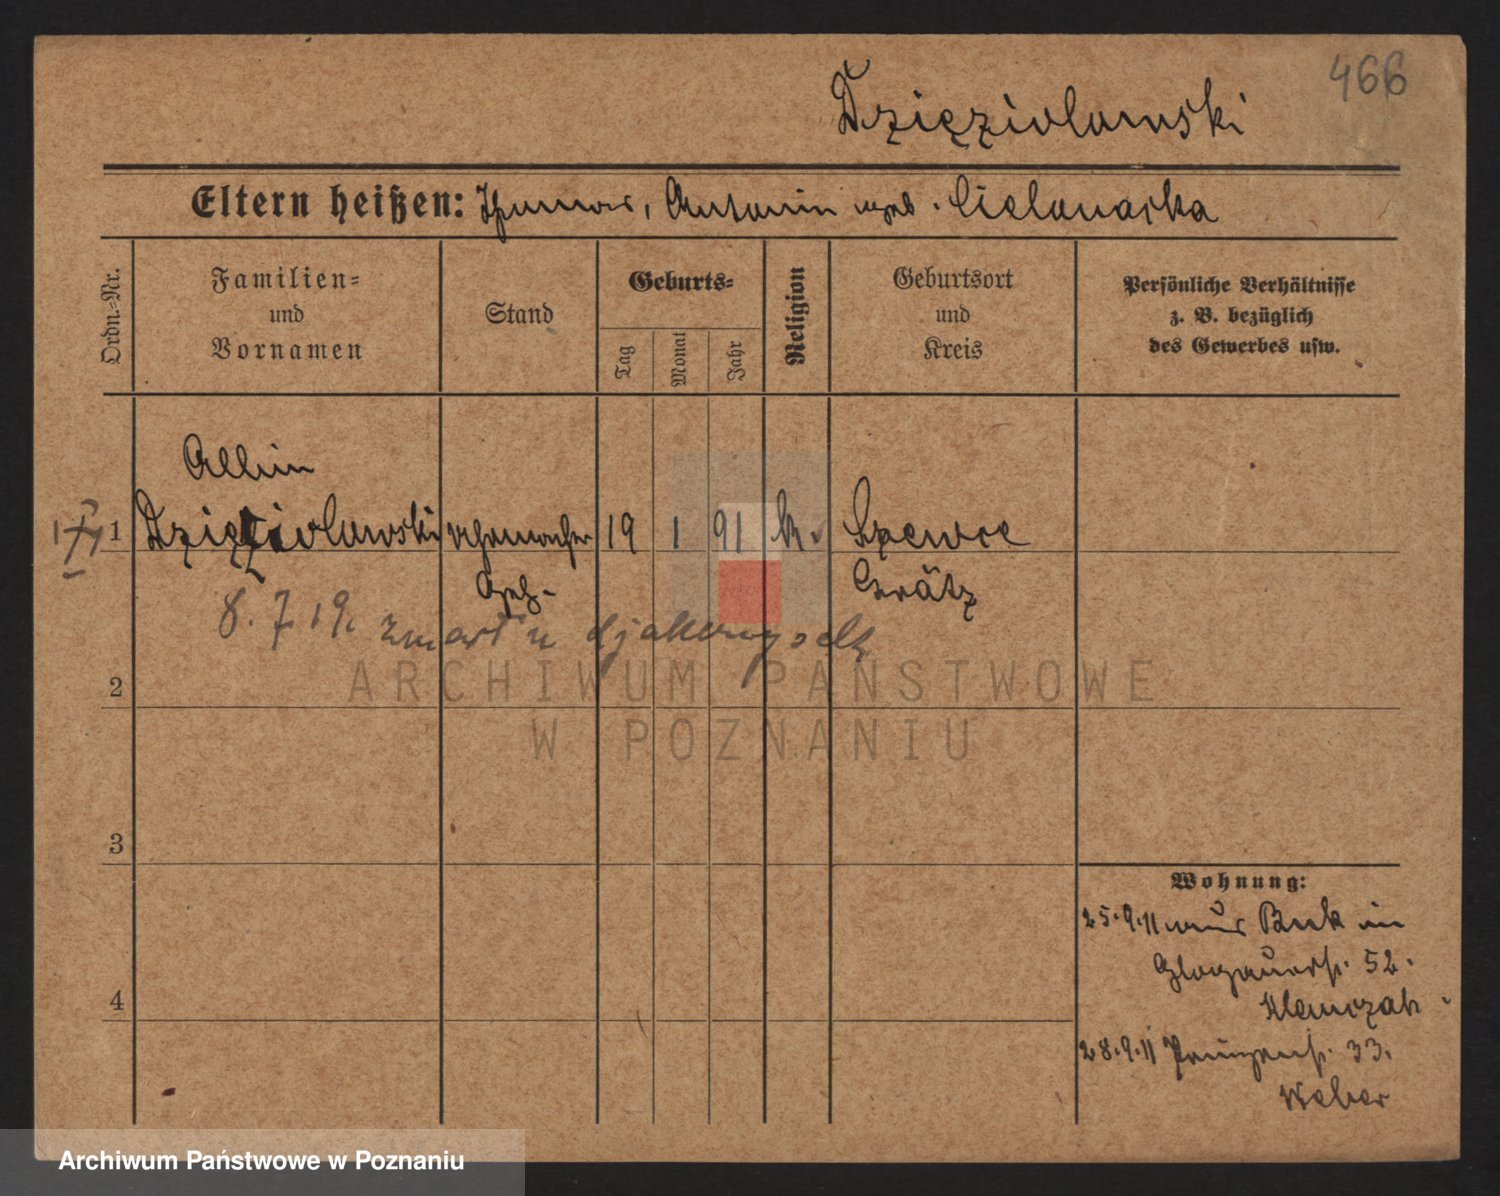 466
Dzięziolowski
Eltern heißen: Thomas, Antonin geb. Cielonacka
Ordn.-Nr.
Familien-
und
Vornamen
Stand
Geburts-
Tag
Monat
Jahr
Religion
Geburtsort
und
Kreis
Persönliche Verhältnisse
z. B. bezüglich
des Gewerbes usw.
Albin
1 Dzięziolowski Uhrmacher 19 1 91 k. Szewce
Geh. Grätz
8. 7 19. zmarł u djakonysek
2
3
4
Wohnung:
25.9.11 aus Buk in
Glogauerstr. 52.
Klemczak
28.9.11 Prinzenstr. 33.
Weber
ARCHIWUM PAŃSTWOWE
W POZNANIU
Archiwum Państwowe w Poznaniu